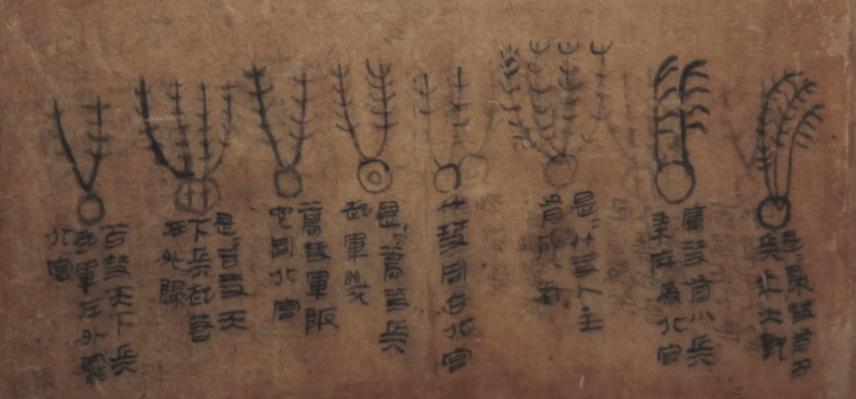 是帚彗有內
兵年大孰
厲彗有小兵
黍麻為北宮
是竹彗人主
有死者
竹彗同占北宮
是蒿彗兵
起軍幾
蒿彗軍阪
它同北宮
是苫彗天
下兵起若
在外歸
苫彗天下兵
起軍在外罷
北宮